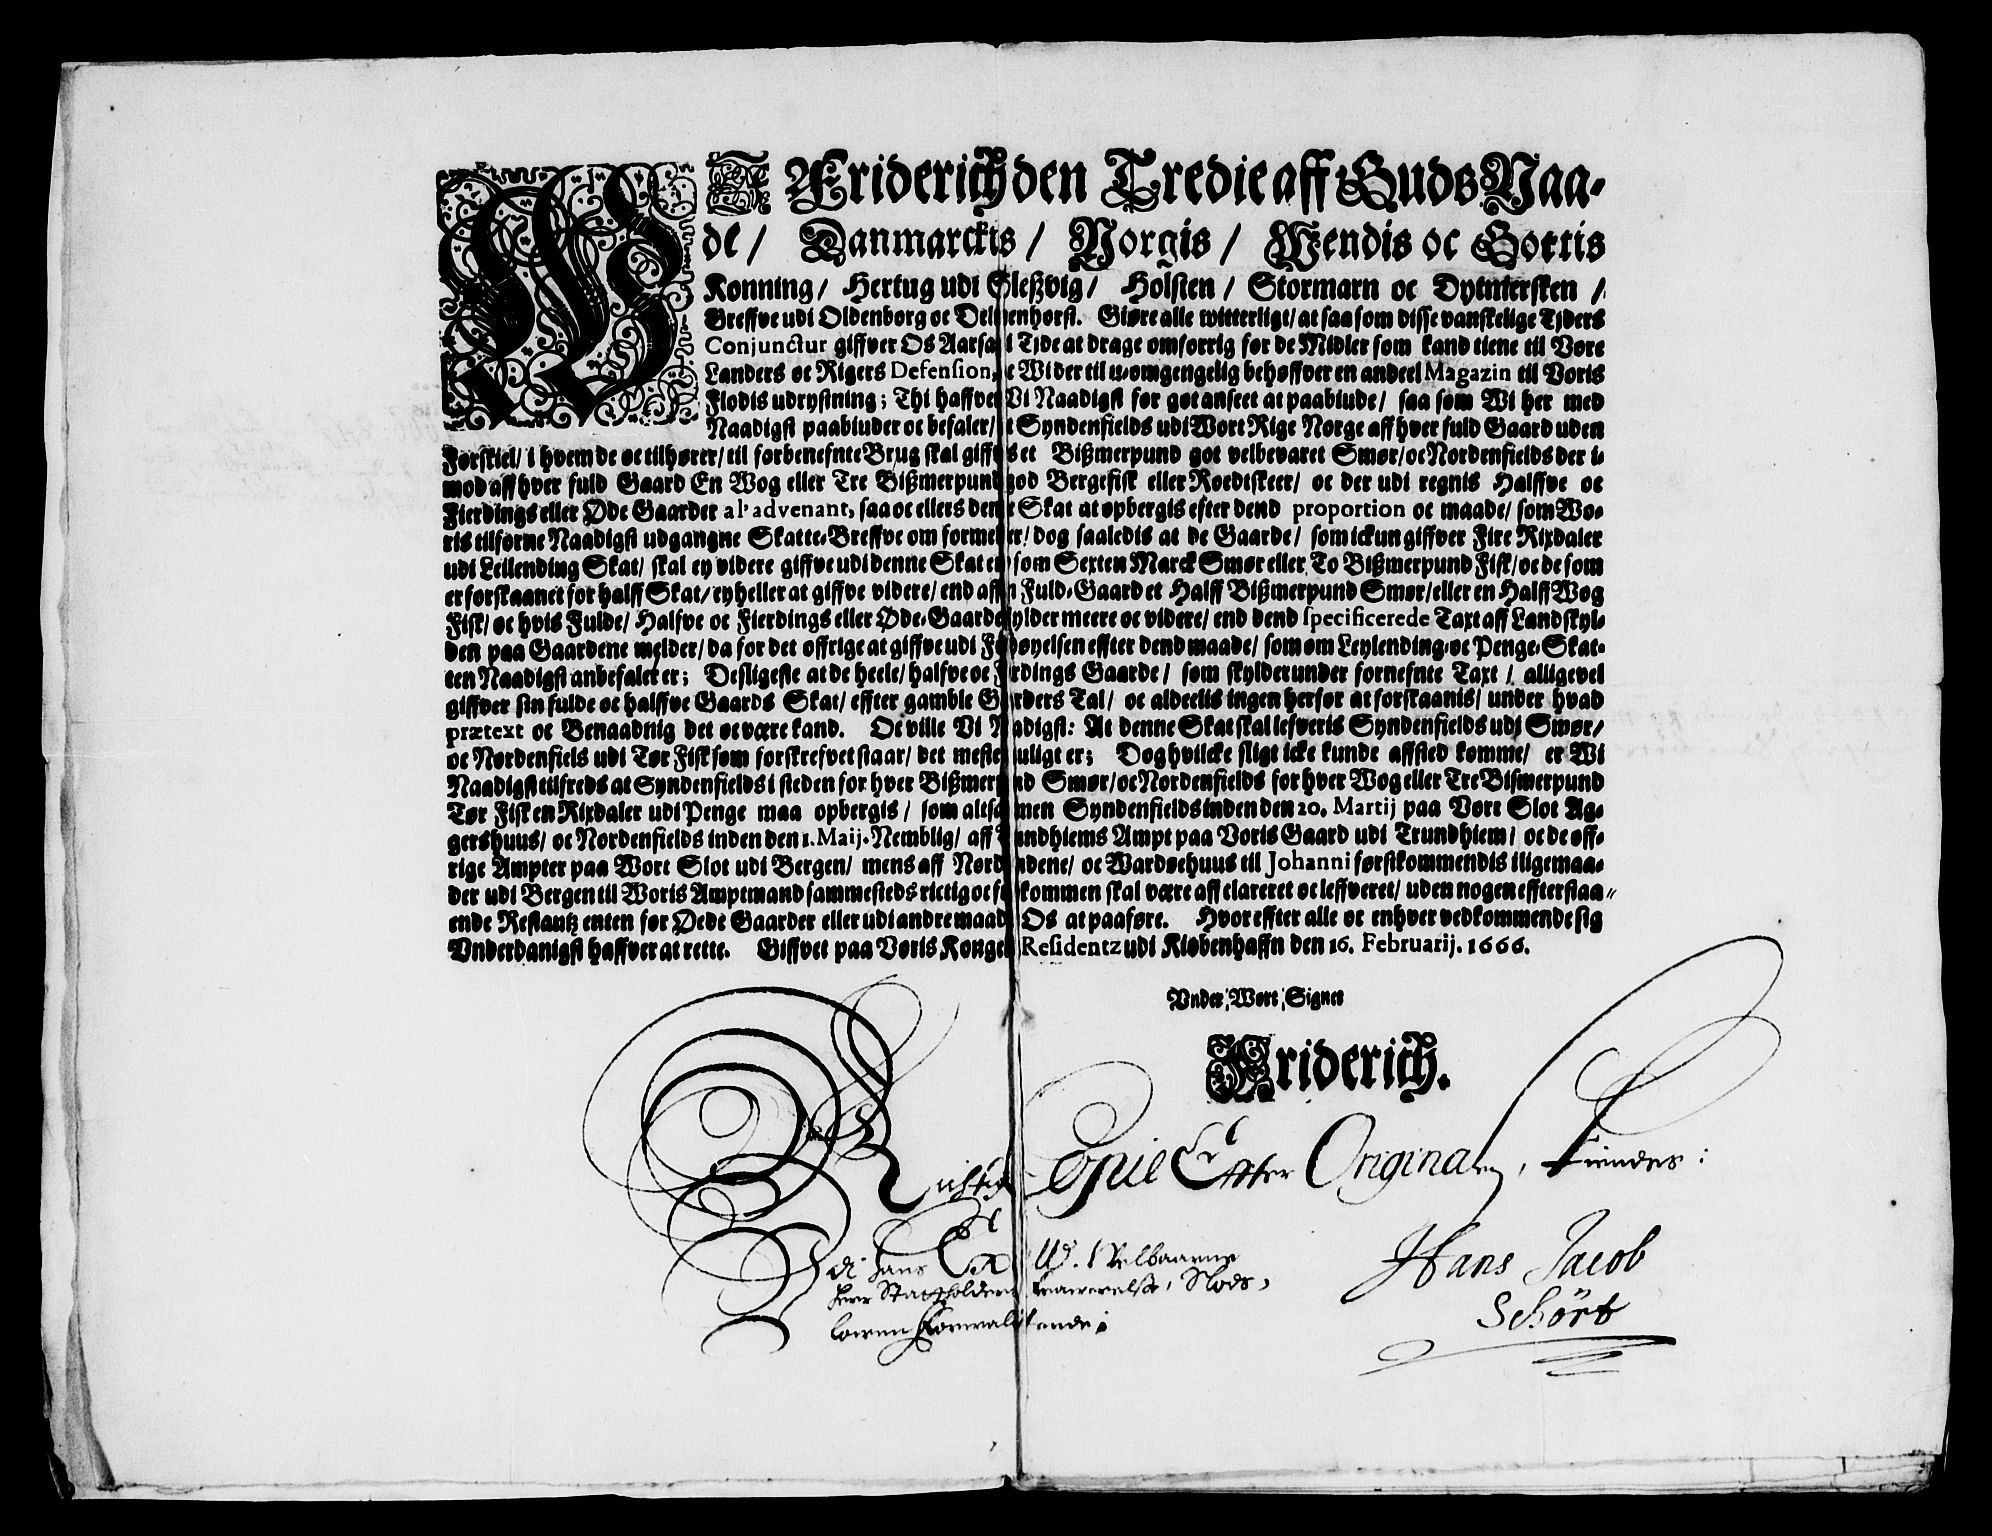 WI Friderich den Tredie aff Guds Naa-
de / Danmarckis / Norgis / Wendis oc Gottis
Konning / Hertug udi Sleßvig / Holsten / Stormarn oc Dytmersken /
Greffve udi Oldenborg oc Delmenhorst. Giøre alle witterligt / at saa som disse vanskelige Tjders
Conjunctur giffver Os Aarsag i Tjde at drage omsorrig for de Midler som kand tiene til Vore
Landers oc Rigers Defension, oc Wi der til u-omgengelig behøffver en andeel Magazin til Voris
Flodis udrystning; Thi haffver Vi Naadigst for got anseet at paabiude / saa som Wi her med
Naadigst paabiuder oc befaler / at Syndenfields udi Wort Rige Norge aff hver fuld Gaard uden
Forskiel / i hvem de oc tilhører / til forbenefnte Brug skal giffvis et Bißmerpund got velbevaret Smør / oc Nordenfields der i-
mod aff hver fuld Gaard En Wog eller Tre Bißmerpund god Bergefisk eller Roedskeer / oc der udi regnis Halffve oc
Fierdings eller Øde Gaarder al'advenant, saa oc ellers denne Skat at opbergis efter dend proportion oc maade / som Wo-
ris tilforne Naadigst udgangne Skatte-Breffve om formelder / dog saaledis at de Gaarde / som ickun giffver Fire Rixdaler
udi Leilending Skat / skal ey videre giffve udi denne Skat end som Sexten Marck Smør eller To Bißmerpund Fisk / oc de som
er forskaanet for halff Skat / ey heller at giffve videre / end aff en Fuld-Gaard et Halff Bißmerpund Smør / eller en Halff Wog
Fisk / oc hvis Fulde / Halfve oc Fierdings eller Øde-Gaarde skylder meere oc videre / end dend specificerede Taxt aff Landskyl-
den paa Gaardene melder / da for det offrige at giffve udi Forhøyelsen effter dend maade / som om Leylending-oc Penge-Skat-
ten Naadigst anbefalet er; Desligeste at de heele / halfve oc Fierdings Gaarde / som skylder under fornefnte Taxt / alligevel
giffver sin fulde oc halffve Gaards Skat / effter gamble Gaarders Tal / oc aldeelis ingen herfor at forskaanis / under hvad
prætext oc Benaadnig det oc være kand. Oc ville Vi Naadigst: At denne Skat skal lefveris Syndenfields udj Smør /
oc Nordenfiels udi Tør Fisk som forskrefvet staar / det meste muligt er; Dog hvilcke sligt icke kunde affsted komme / er Wi
Naadigst tilfreds at Syndenfields i steden for hver Bißmerpund Smør / oc Nordenfields for hver Wog eller Tre Bißmerpund
Tør Fisk en Rixdaler udi Penge maa opbergis / som altsammen Syndenfields inden den 20. Martij paa Vort Slot Ag-
gershuus / oc Nordenfields inden den 1. Maij. Nemblig / aff Trundhiems Ampt paa Voris Gaard udi Trundhiem / oc de øff-
rige Ampter paa Wort Slot udi Bergen / mens aff Nordlandene / oc Wardøehuus til Johanni førstkommendis iligemaa-
der udi Bergen til Woris Amptmand sammesteds rictig oc fuldkommen skal være aff clareret oc leffveret / uden nogen effterstaa-
ende Restantz enten for Øede Gaarder eller udi andre maader Os at paaføre. Hvor effter alle oc enhver vedkommende sig
Vnderdanigst haffver at rette. Giffvet paa Voris Kongel. Residentz udi Kiøbenhaffn den 16. Februarij. 1666.
Vnder Wort Signet
Friderich.
Richtig Copie Effter Originalen, Findes:
Hans Jacob
Schört